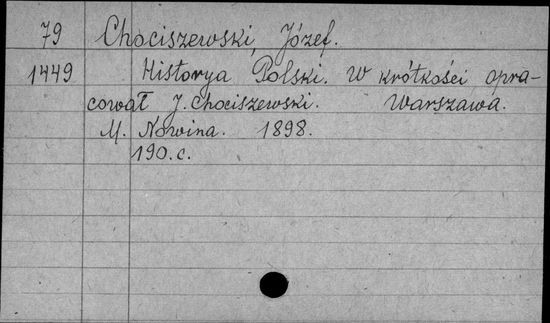 79 Chociszewski, Józef.
1449 Historya Polski. W krótkości opra-
cował J. Chociszewski. Warszawa.
M. Nowina. 1898.
190.c.